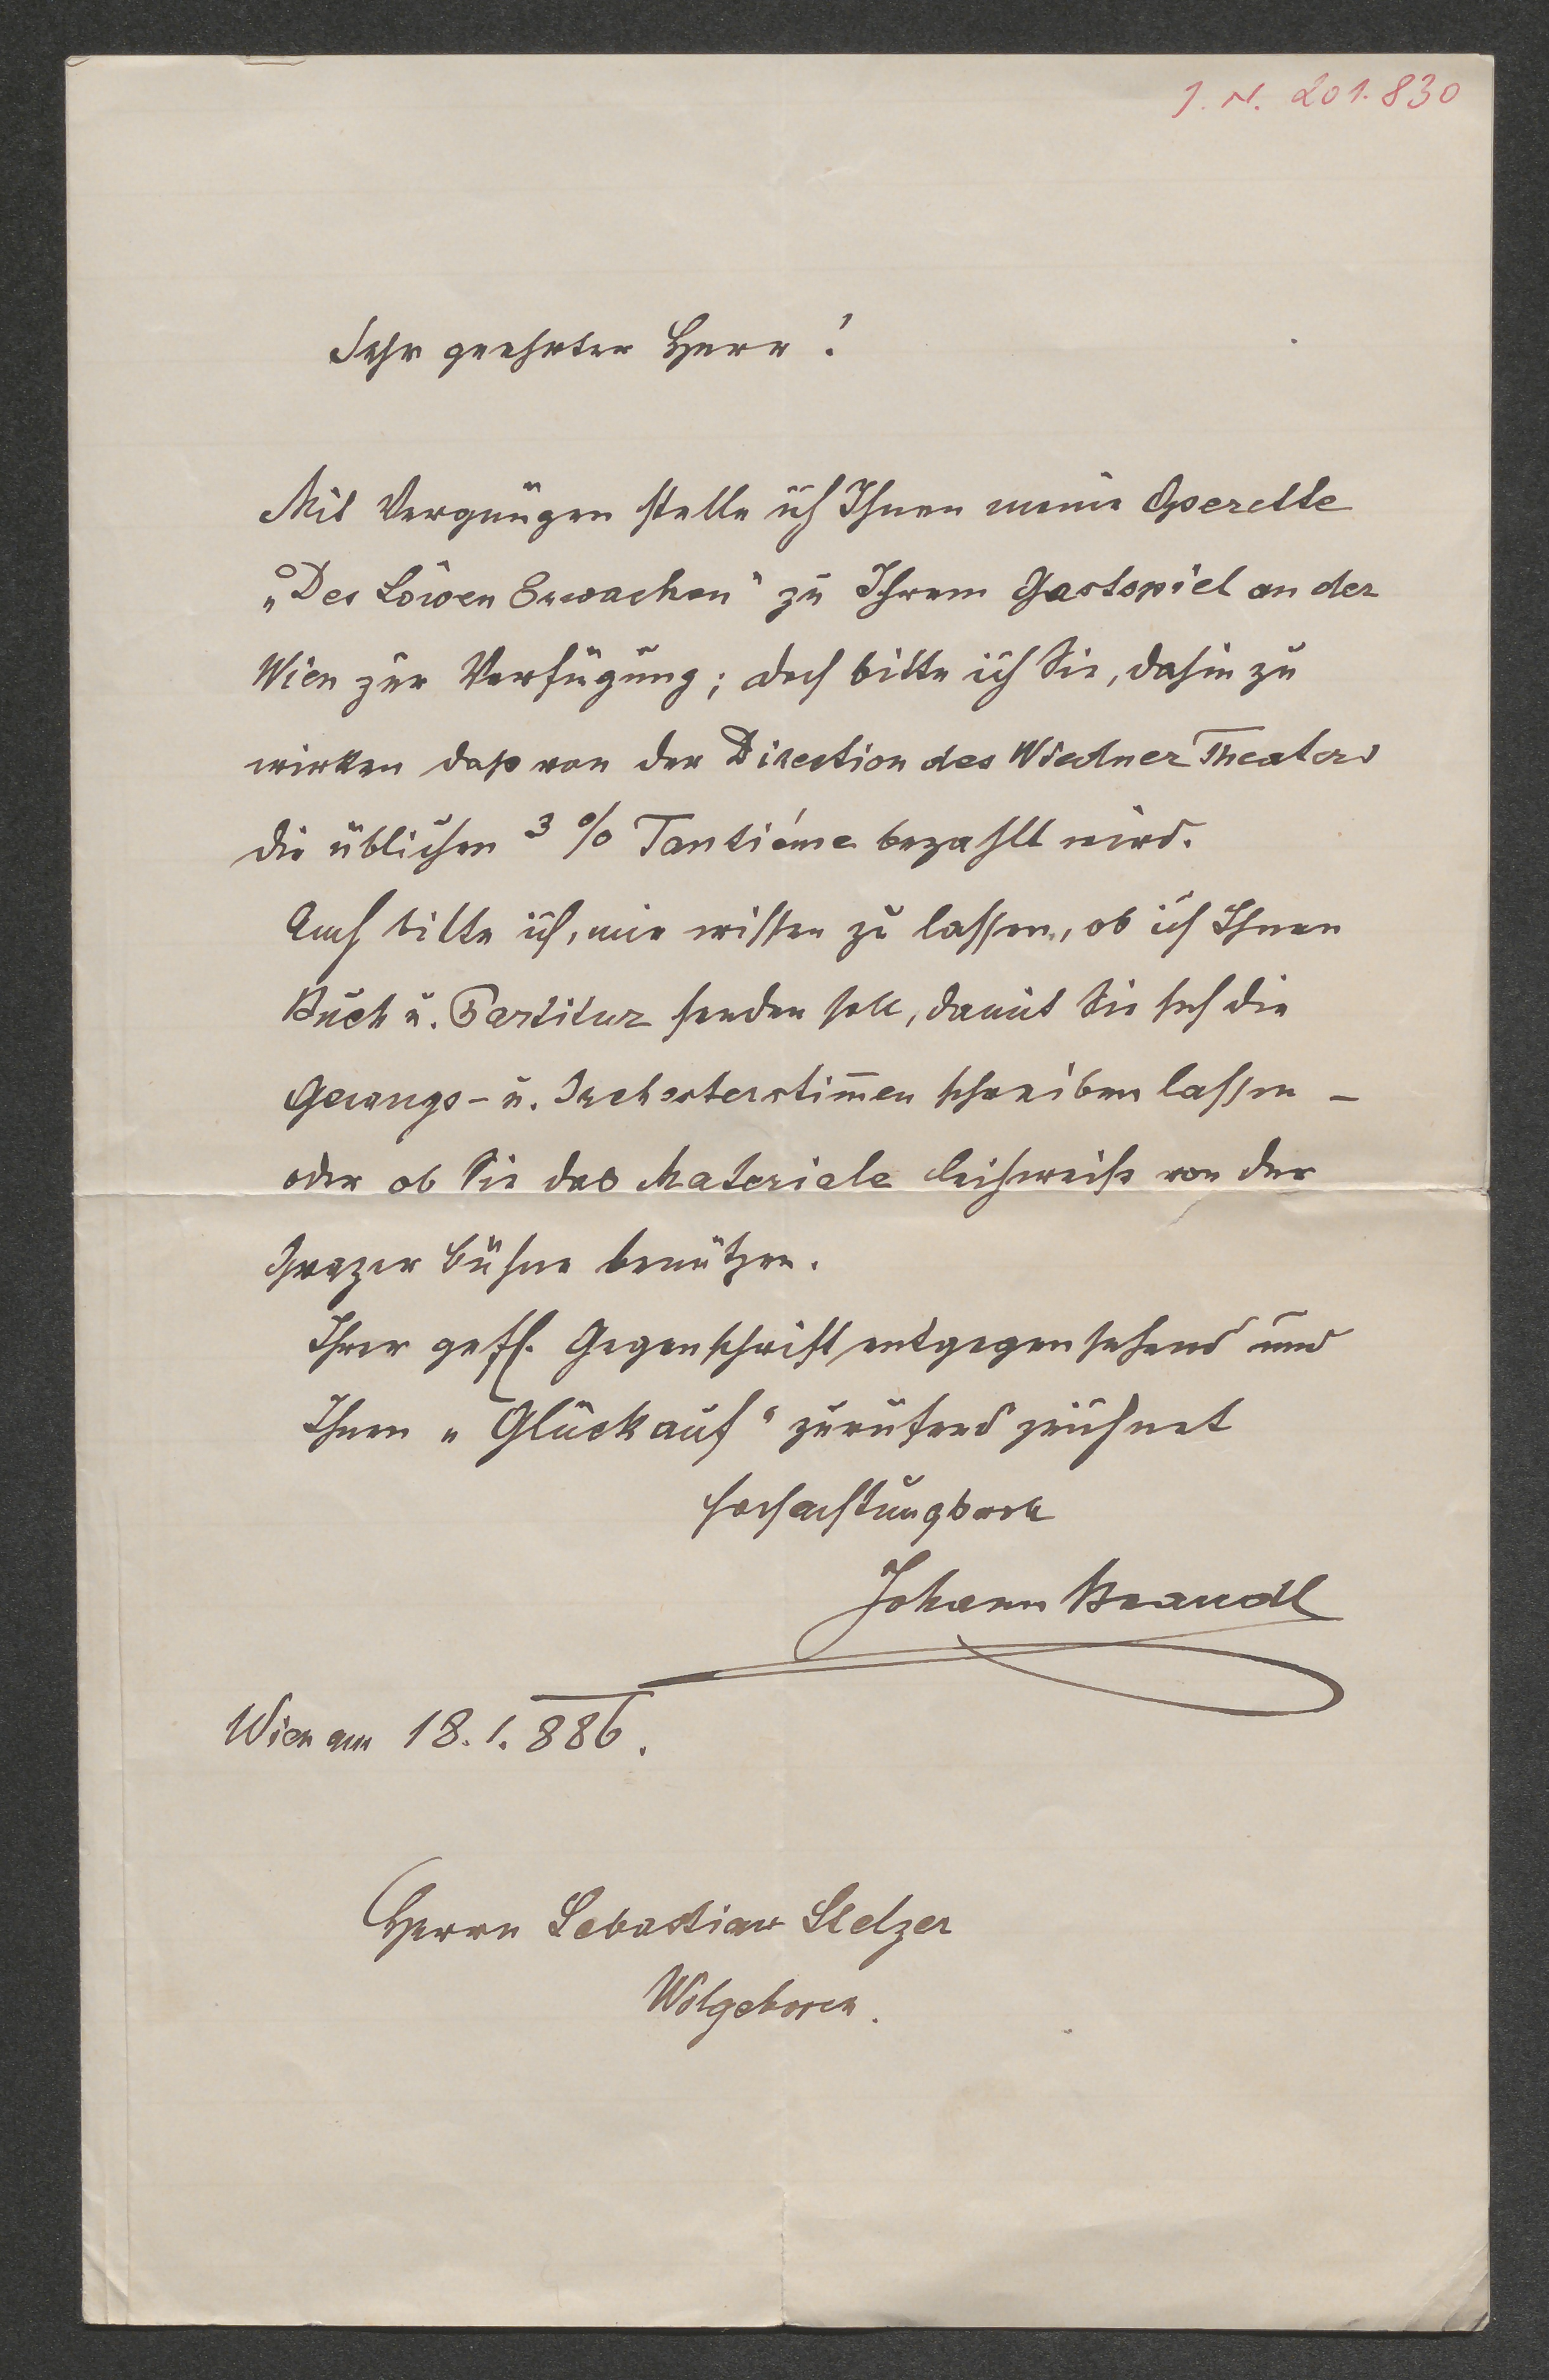 J. N. 201.830
Sehr geehrter Herr!
Mit Vergnügen stelle ich Ihnen meine Operette
„Des Löwen Erwachen" zu Ihrem Gastspiel an der
Wien zur Verfügung; doch bitte ich Sie, dahin zu
wirken daß von der Direction des Wiedner Theaters
die üblichen 3 % Tantiéme bezahlt wird.
Auch bitte ich, mir wissen zu lassen, ob ich Ihnen
Buch u. Partitur senden soll, damit Sie sich die
Gesangs- u. Orchesterstim̄en schreiben lassen –
oder ob Sie das Materiale leihweise von der
Grazer Bühne benützen.
Ihrer gefl. Gegenschrift entgegensehend und
Ihnen „Glück auf" zurufend zeichnet
hochachtungsvoll
Johann Brandl
Wien am 18.1.886.
Herrn Sebastian Stelzer
Wolgeboren.